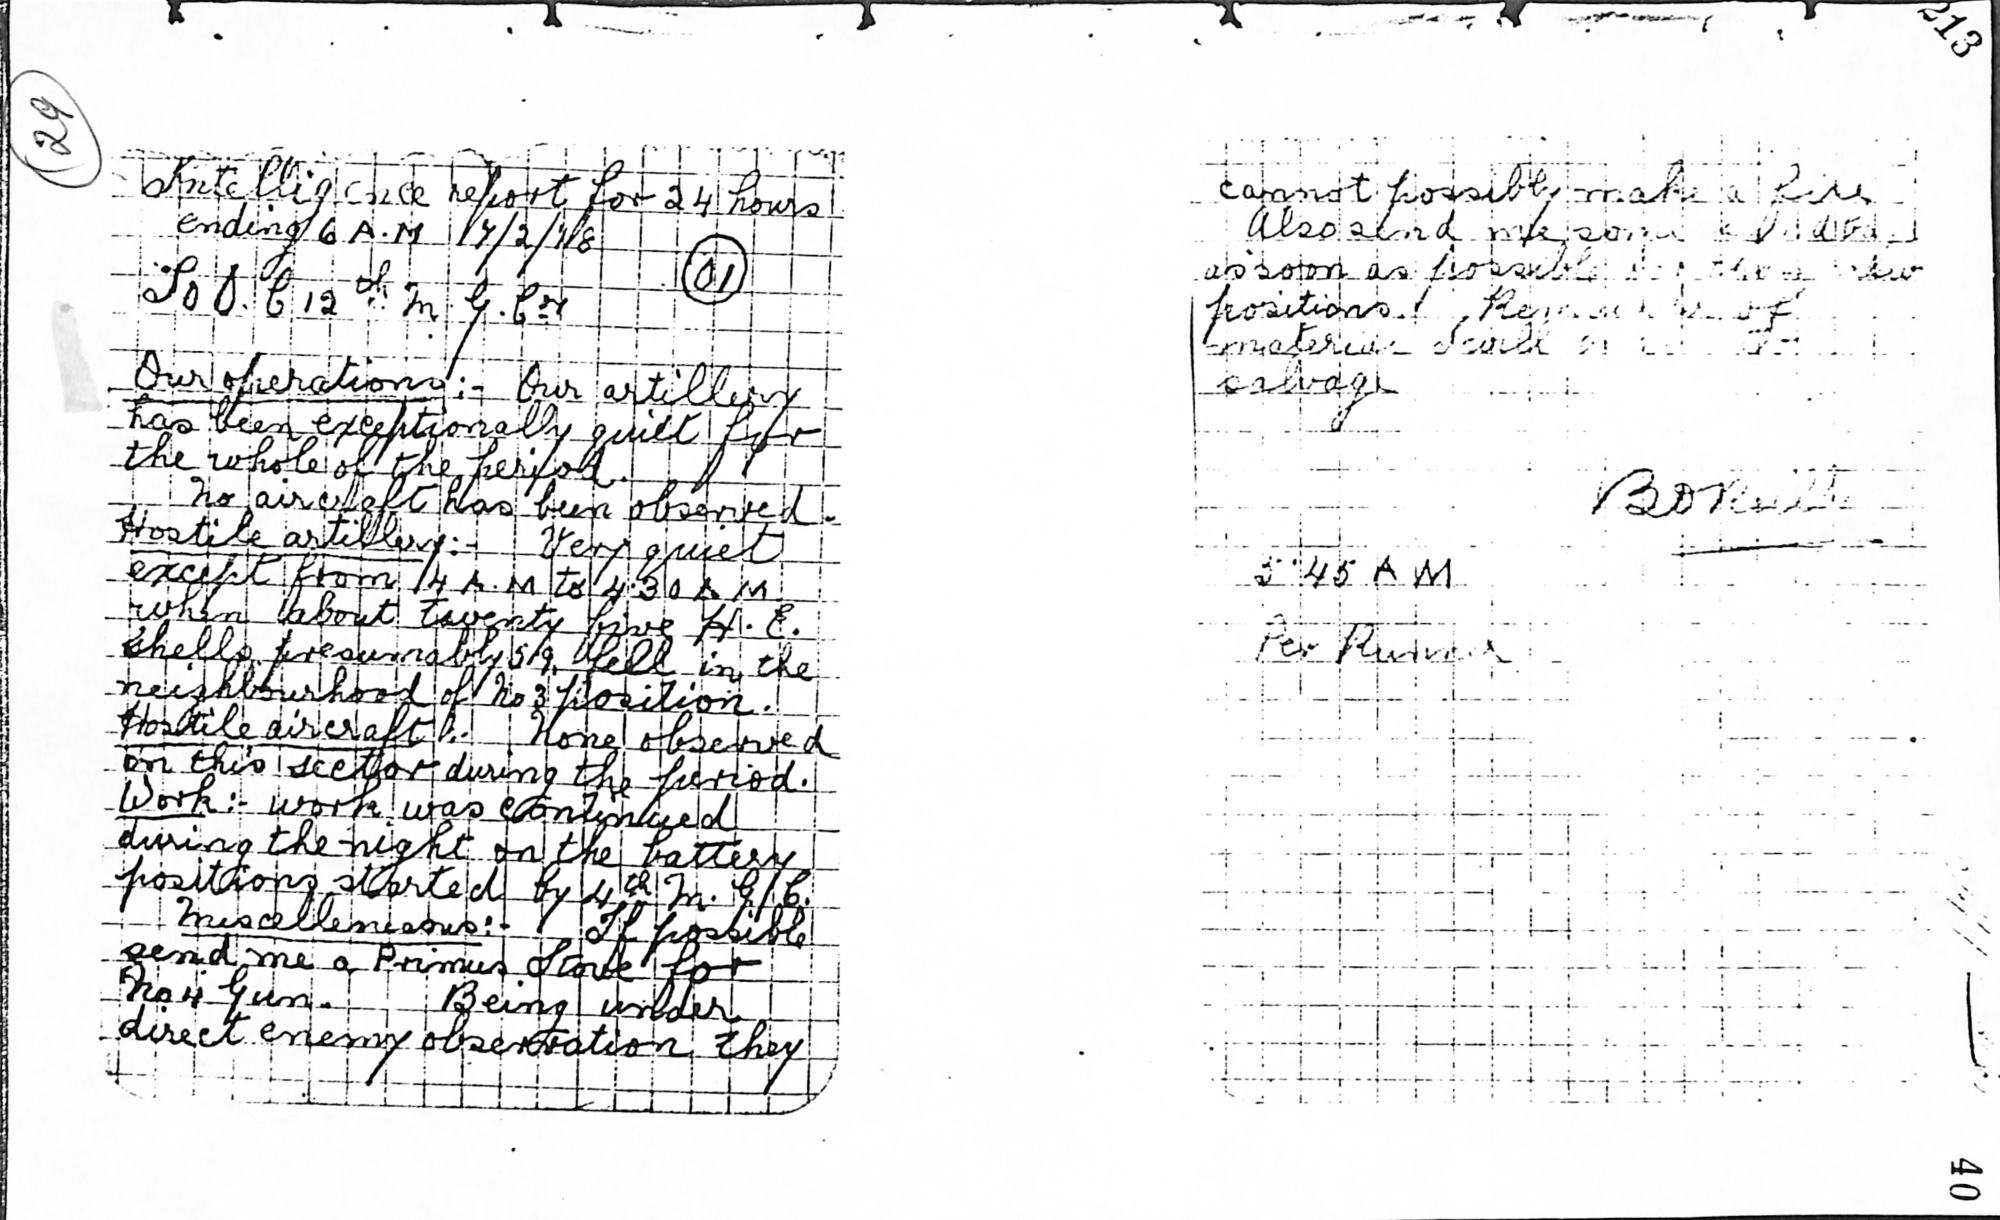 213
29
Intelligence report for 24 hours
ending 6 A.M 17/2/18
01
To O.C 12th M.G.Coy
Our operations:- Our artillery
has been exceptionally quiet for
the whole of the period.
No aircraft has been observed.
Hostile artillery:- Very quiet
except from 4 A.M to 4.30 A M.
when about twenty five H.E.
shells presumably 5.9 fell in the
neighbourhood of No 3 position.
Hostile aircraft:- None observed
on this sector during the period.
Work:- work was continued
during the night on the battery
positions started by 4th M.G.C.
Miscelleneous:- If possible
send me a Primus Stove for
No 4 Gun. Being under
direct enemy observation they
cannot possibly make a fire
Also send me some
as soon as possible new
positions. of
material
salvage
5.45 A M
Per Runner
40